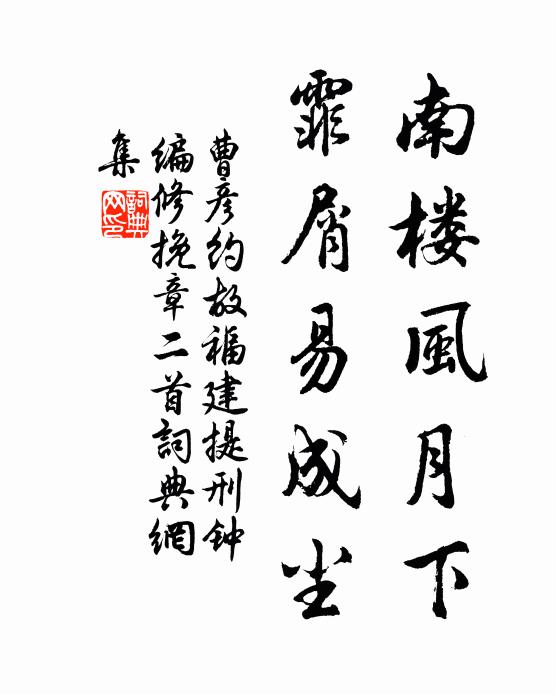 南楼風月下
霏屑易成尘
曹彦約故福建提刑鈡
編修挽章二首詞典網
集
詞典
网印